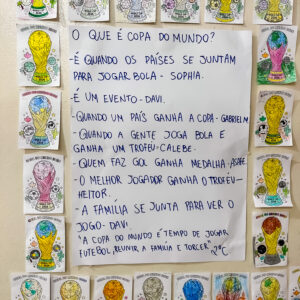 O QUE É COPA DO MUNDO?
-É QUANDO OS PAÍSES SE JUNTAM
PARA JOGAR BOLA - SOPHIA.
-É UM EVENTO - DAVI.
-QUANDO UM PAÍS GANHA A COPA - GABRIEL M
-QUANDO A GENTE JOGA BOLA E
GANHA UM TROFÉU - CALEBE.
-QUEM FAZ GOL GANHA MEDALHA -
-O MELHOR JOGADOR GANHA O TROFÉU -
HEITOR.
-A FAMÍLIA SE JUNTA PARA VER O
JOGO - DAVI
"A COPA DO MUNDO É TEMPO DE JOGAR
FUTEBOL, REUNIR A FAMÍLIA E TORCER" 2°C